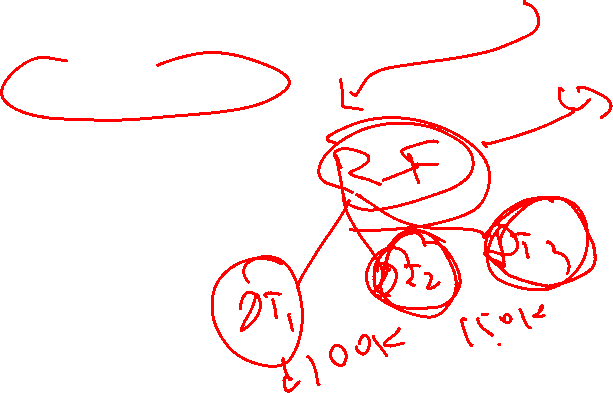 RF
DT1 DT2 DT3
100K 150K